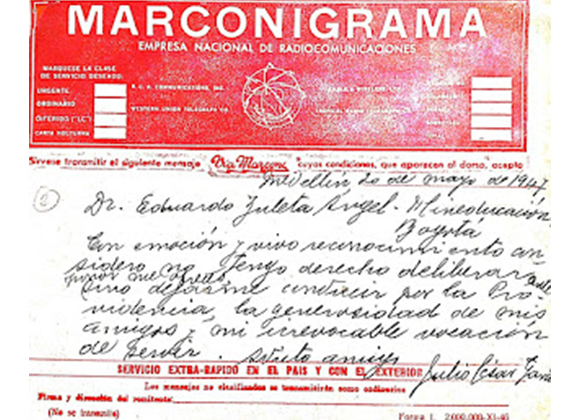 MARCONIGRAMA
EMPRESA NACIONAL DE RADIOCOMUNICACIONES
MARQUESE LA CLASE
DE SERVICIO DESEADO:
URGENTE
ORDINARIO
DIFERIDO ("LC")
CARTA NOCTURNA
R.C.A. COMMUNICATIONS, INC.
WESTERN UNION TELEGRAPH CO.
Sírvese transmitir el siguiente mensaje Vía Marconi cuyas condiciones, que aparecen al dorso, acepto
Medellín 20 de mayo de 1947
2
Dr. Eduardo Zuleta Angel - Mineducación
Bogotá
Con emoción y vivo reconocimiento con
sidero no tengo derecho deliberar ante
honor me
sino dejarme conducir por la Pro-
videncia, la generosidad de mis
amigos y mi irrevocable vocación
de servir.
SERVICIO EXTRA-RAPIDO EN EL PAIS Y CON EL EXTERIOR
Julio César
Los mensajes no clasificados se transmitirán como ordinarios
Firma y dirección del remitente:
(No se transmite)
Forma 1. 2.000.000-XI-46